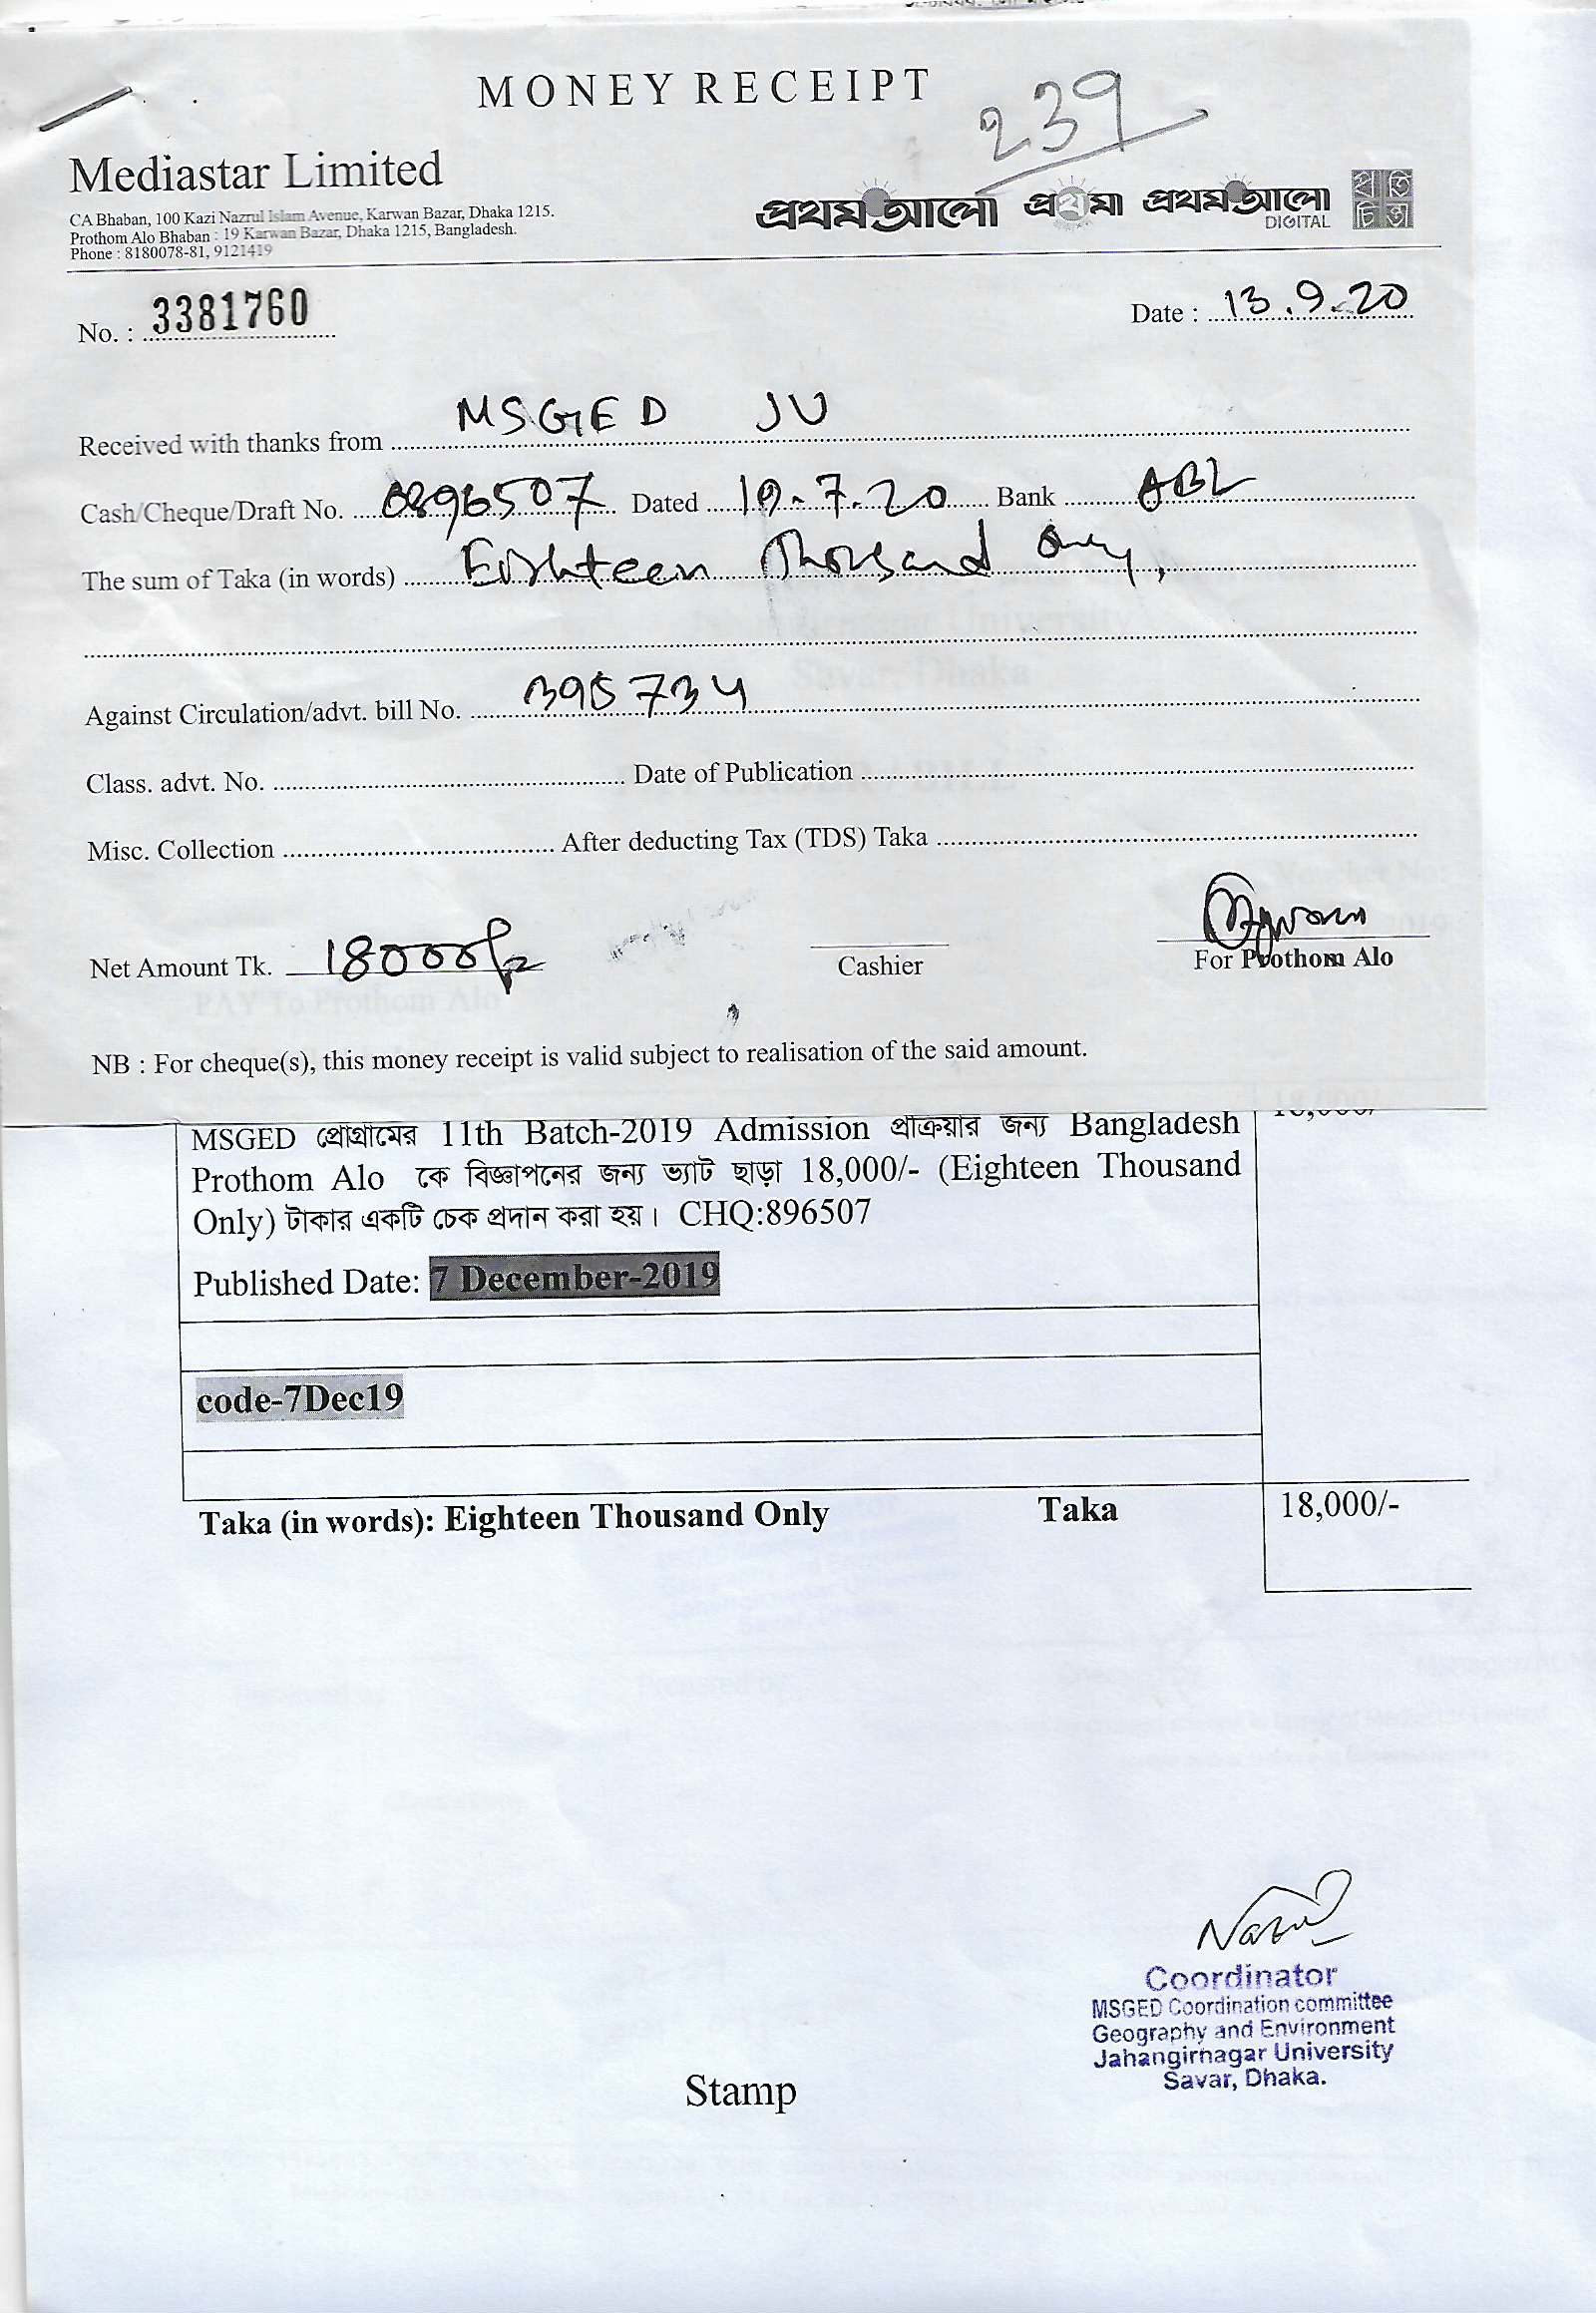 MONEY RECEIPT
239
Mediastar Limited
CA Bhaban, 100 Kazi Nazrul Islam Avenue, Karwan Bazar, Dhaka 1215.
Prothom Alo Bhaban : 19 Karwan Bazar, Dhaka 1215, Bangladesh.
Phone : 8180078-81, 9121419
প্রথম আলো প্রথমা প্রথম আলো DIGITAL প্রতিচিন্তা
No. : 3381760
Date : 13.9.20
Received with thanks from MSGED JU
Cash/Cheque/Draft No. 0896507 Dated 19.7.20 Bank ABL
The sum of Taka (in words) Eighteen Thousand Only,
Against Circulation/advt. bill No. 395734
Class. advt. No. Date of Publication
Misc. Collection After deducting Tax (TDS) Taka
Net Amount Tk. 18000/=
Cashier
For Prothom Alo
NB : For cheque(s), this money receipt is valid subject to realisation of the said amount.
18,000/-
MSGED প্রোগ্রামের 11th Batch-2019 Admission প্রক্রিয়ার জন্য Bangladesh
Prothom Alo কে বিজ্ঞাপনের জন্য ভ্যাট ছাড়া 18,000/- (Eighteen Thousand
Only) টাকার একটি চেক প্রদান করা হয়। CHQ:896507
Published Date: 7 December-2019
code-7Dec19
Taka (in words): Eighteen Thousand Only Taka 18,000/-
Coordinator
MSGED Coordination committee
Geography and Environment
Jahangirnagar University
Savar, Dhaka.
Stamp